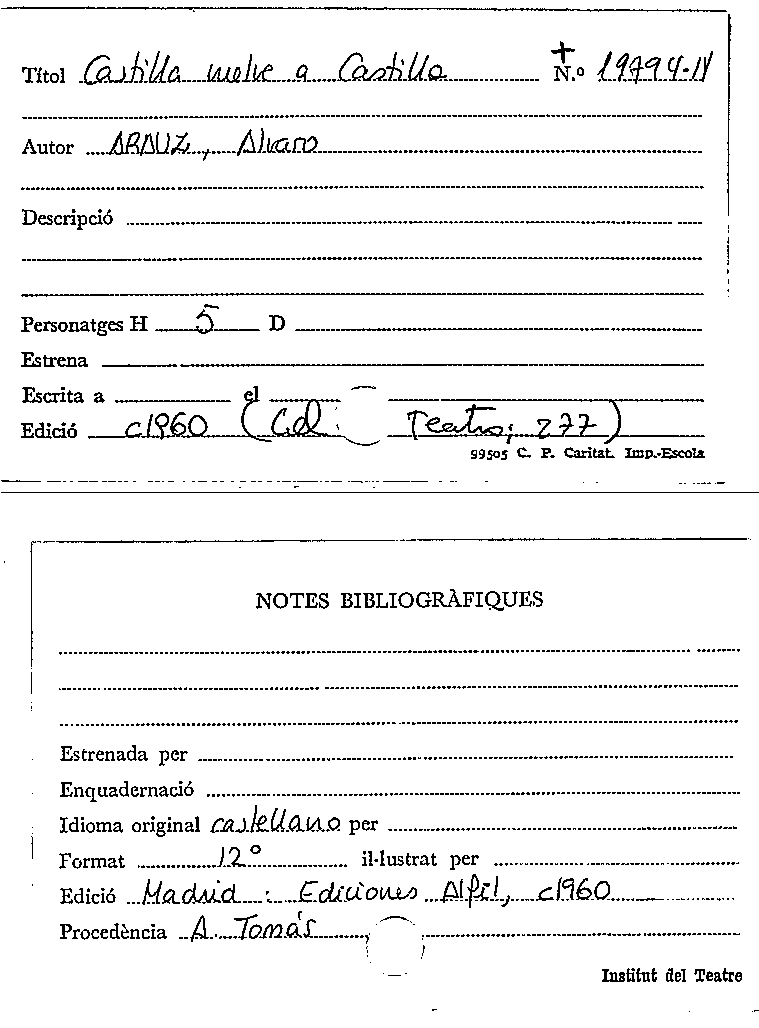 Títol Castilla vuelve a Castilla + N.º 19794-IV
Autor ARAUZ, Alvaro
Descripció
Personatges H 5 D
Estrena
Escrita a el
Edició c1960 (Col. Teatro; 277)
99505 C. P. Caritat. Imp.-Escola
NOTES BIBLIOGRÀFIQUES
Estrenada per
Enquadernació
Idioma original castellano per
Format 12º il·lustrat per
Edició Madrid : Ediciones Alfil, c1960
Procedència A. Tomás
Institut del Teatre